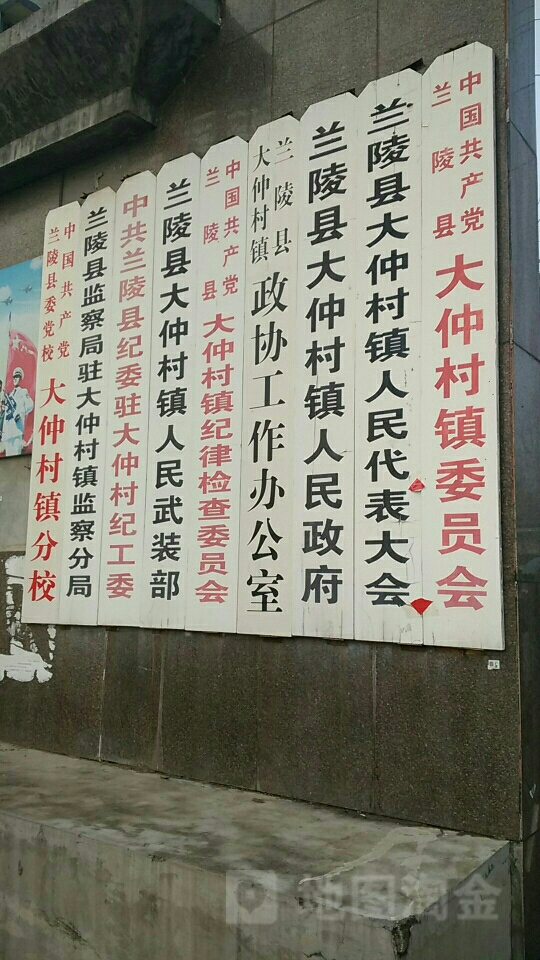 中国共产党
兰陵县
大仲村镇委员会
兰陵县大仲村镇人民代表大会
兰陵县大仲村镇人民政府
兰陵县
大仲村镇
政协工作办公室
中国共产党
兰陵县
大仲村镇纪律检查委员会
兰陵县大仲村镇人民武装部
中共兰陵县纪委驻大仲村纪工委
兰陵县监察局驻大仲村镇监察分局
中国共产党
兰陵县委党校
大仲村镇分校
地图淘金